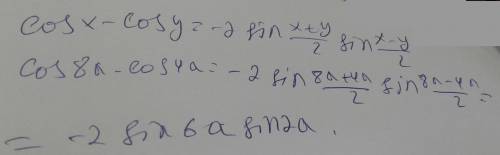 cosx-cosy=-2 sin x+y/2 sin x-y/2
cos8a-cos4a=-2 sin 8a+4a/2 sin 8a-4a/2 =
= -2 sin 6a sin2a.